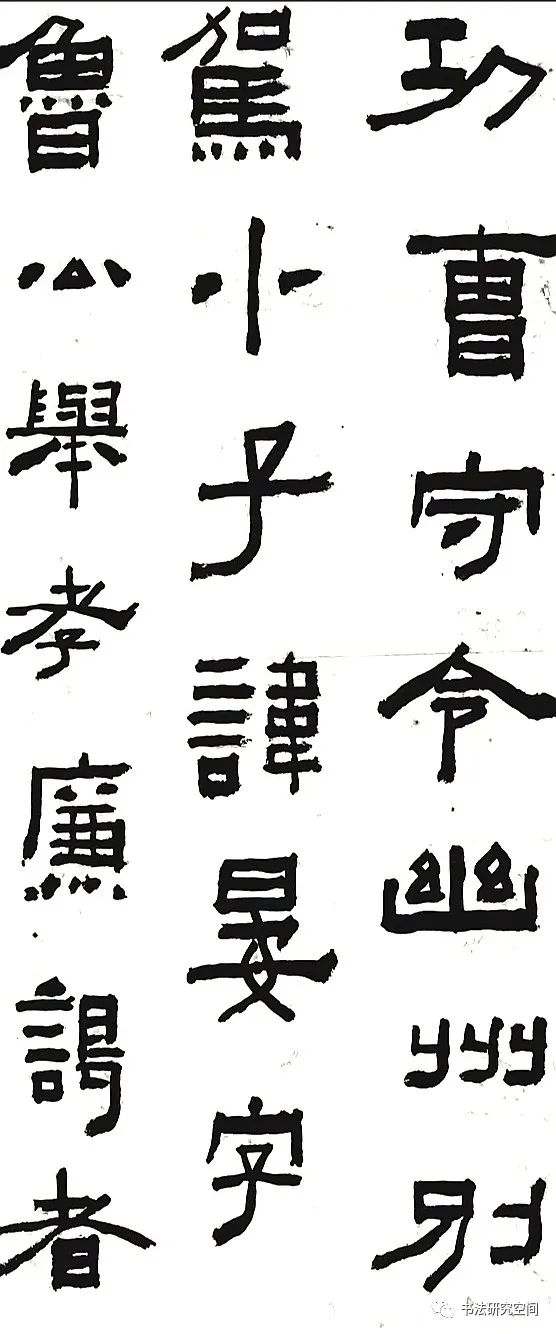 功曹守令幽州別
駕小子諱晏字
魯公舉孝廉謁者
书法研究空间